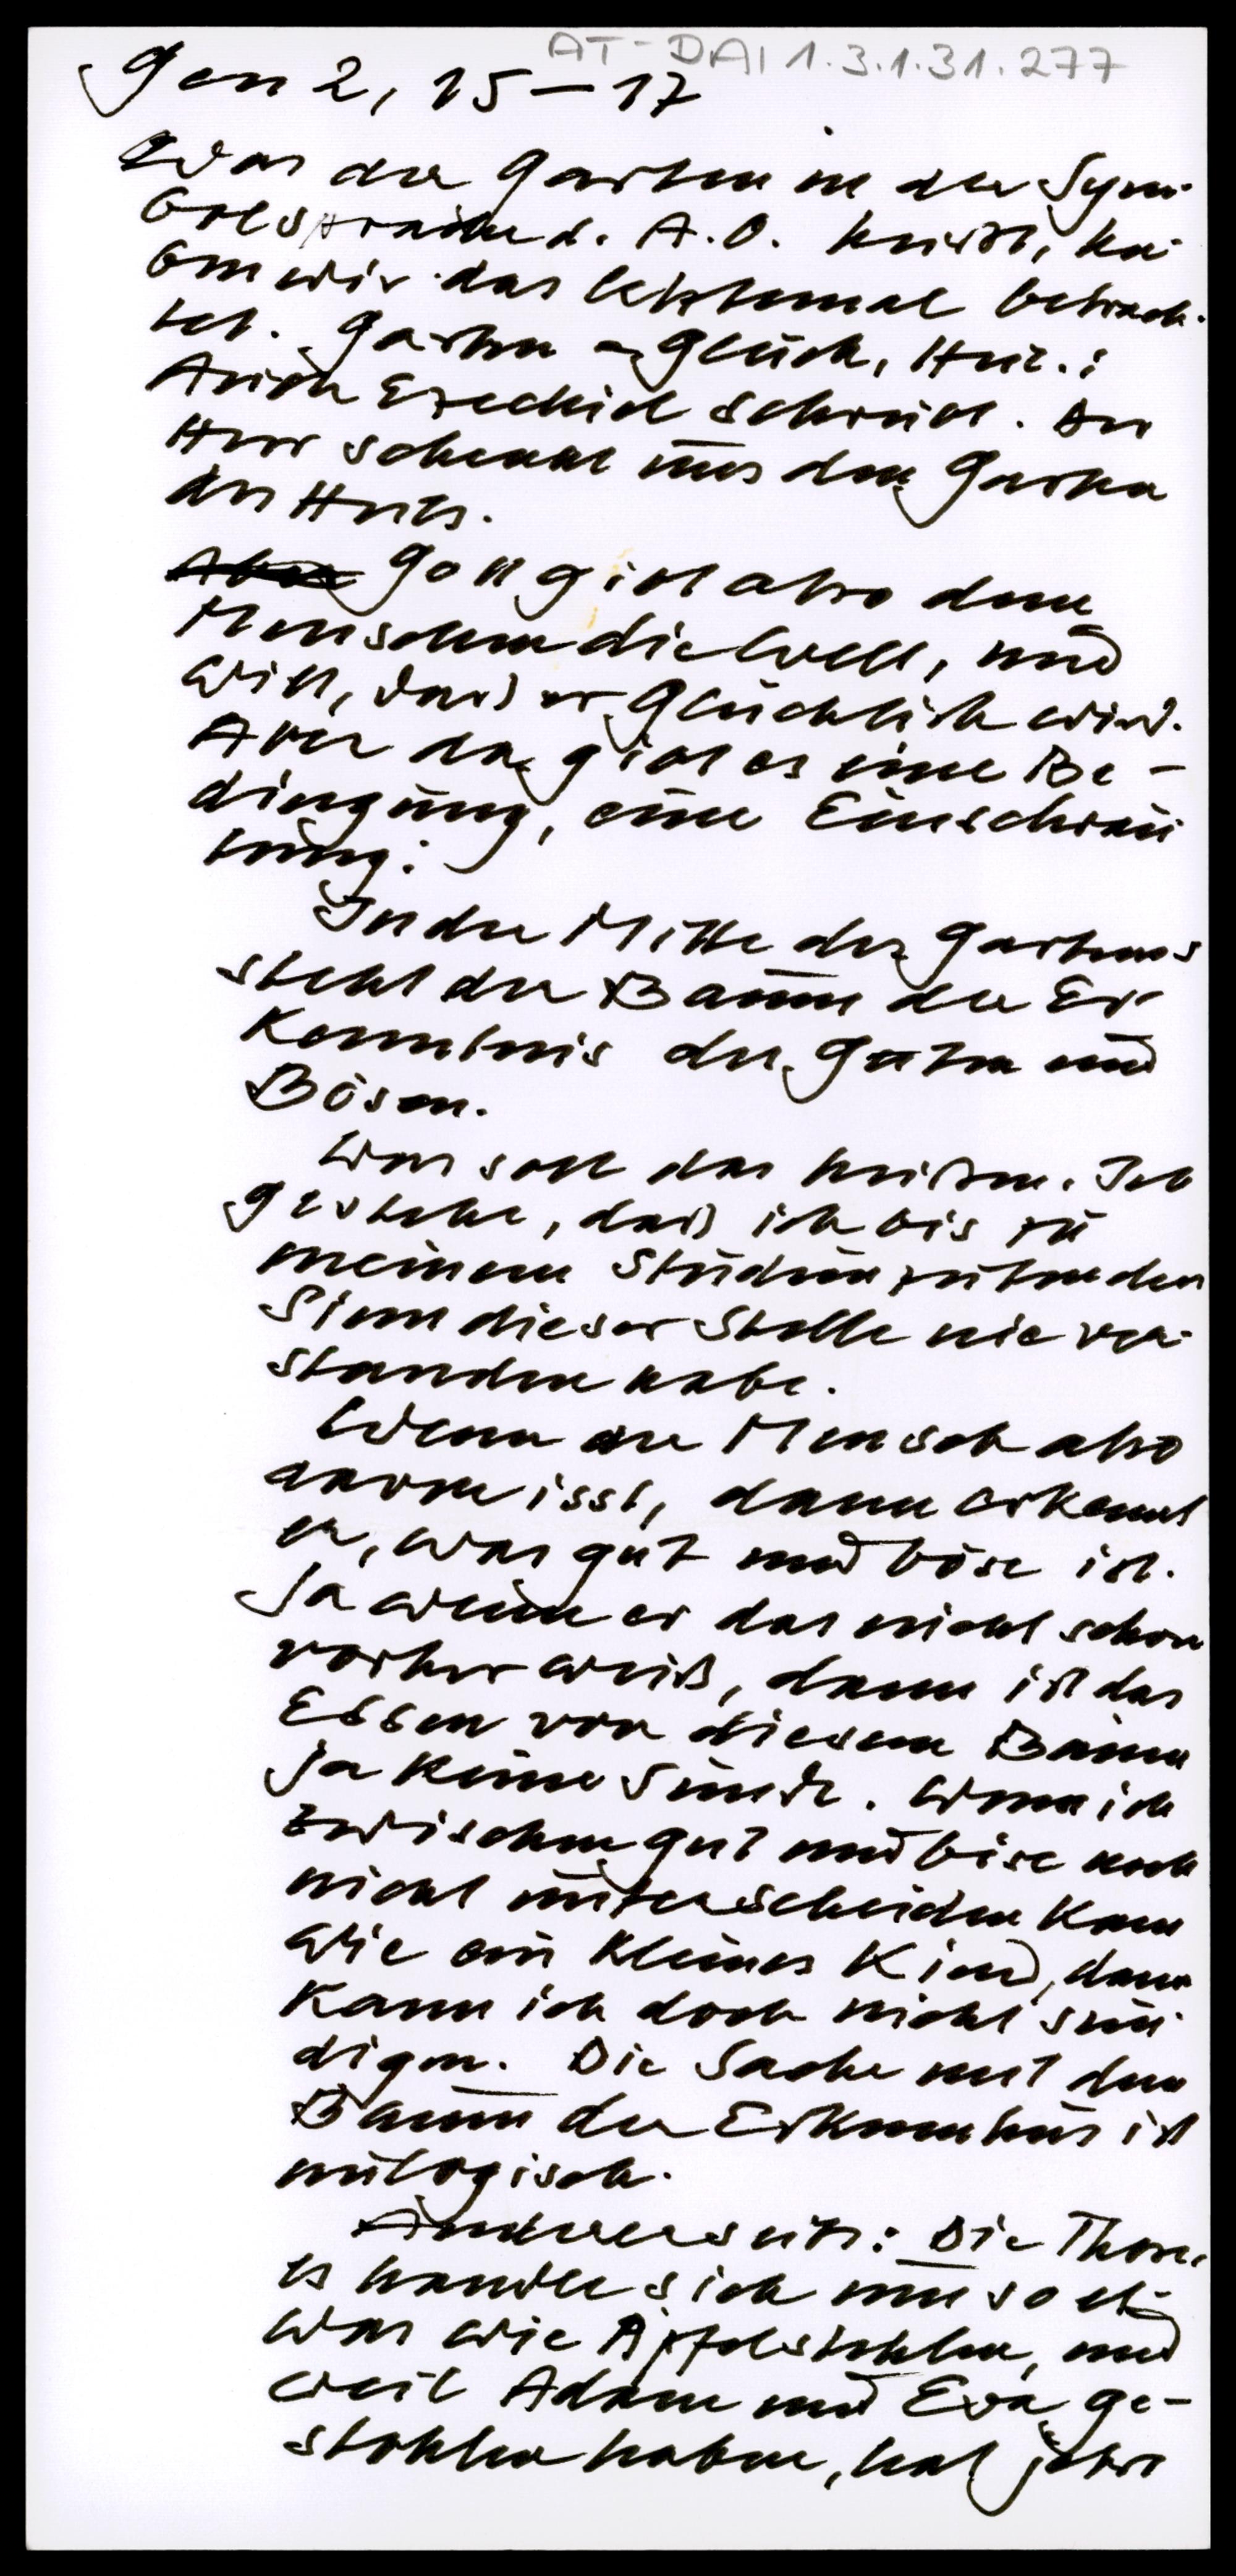 AT-DAI 1.3.1.31.277
Gen 2, 15–17
Was der Garten in der Sym-
bolsprache d. A.O. heißt, ha-
ben wir das letztemal betrach-
tet. Garten = Glück, Heil.:
Auch Ezechiel schreibt. Der
Herr schenkt uns den Garten
des Heils.
Gott gibt also dem
Menschen die Welt, und
will, daß er glücklich wird.
Aber da gibt es eine Be-
dingung, eine Einschrän
kung:
In der Mitte des Gartens
steht der Baum der Er-
kenntnis des Guten und
Bösen.
Was soll das heißen. Ich
gestehe, daß ich bis zu
meinem Studium den
Sinn dieser Stelle nie ver-
standen habe.
Wenn der Mensch also
davon isst, dann erkennt
er, was gut und böse ist.
Ja wenn er das nicht schon
vorher weiß, dann ist das
Essen von diesem Baum
ja keine Sünde. Wenn ich
zwischen gut und böse noch
nicht unterscheiden kann
wie ein kleines Kind, dann
kann ich doch nicht sün
digen. Die Sache mit dem
Baum der Erkenntnis ist
unlogisch.
Andererseits: Die These,
es handle sich um so et-
was wie Äpfelstehlen, und
weil Adam und Eva ge-
stohlen haben, hat jetzt